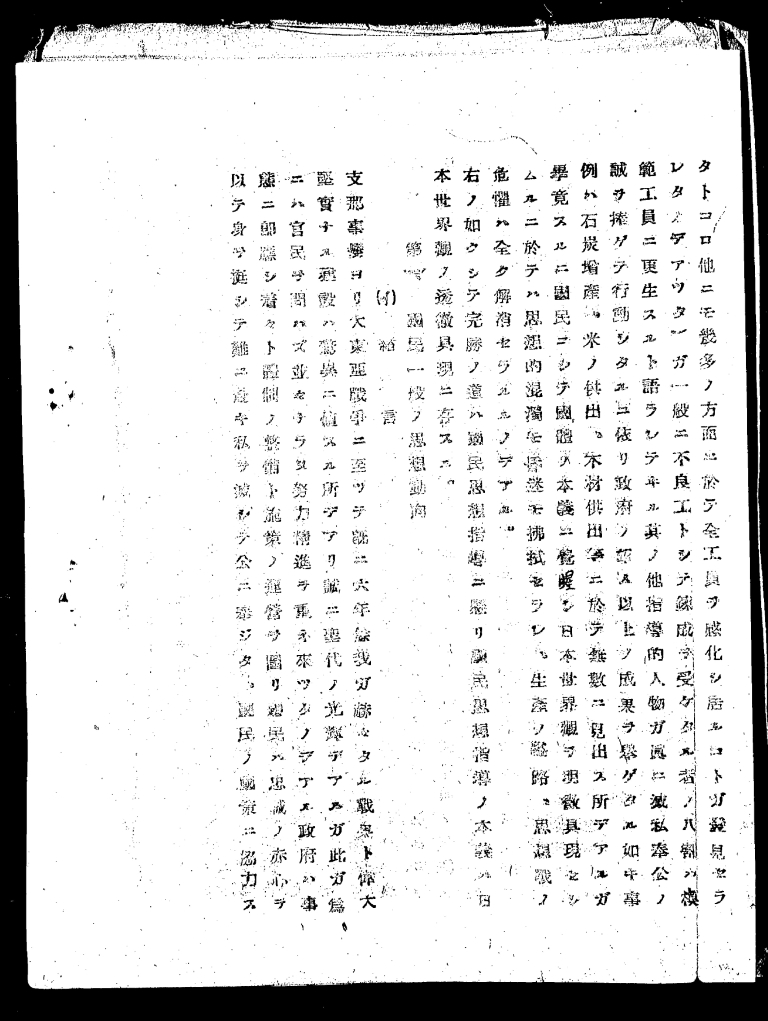 タトコロ他ニモ幾多ノ方面ニ於テ全工員ヲ感化シ居ルコトガ發見セラ
レタノデアツタ、ガ一般ニ不良工トシテ錬成ヲ受ケタル者ノ八割ハ模
範工員ニ更生スルト語ラレテヰル其ノ他指導的人物ガ眞ニ滅私奉公ノ
誠ヲ捧ゲテ行動シタルニ依リ政府ノ以上ノ成果ヲ擧ゲタル如キ事
例ハ石炭増産、米ノ供出、木材供出等ニ於テ無數ニ見出ス所デアルガ
畢竟スルニ國民ニシテ國體ノ本義ニ覺醒シ日本世界觀ヲ明徴具現セシ
ムルニ於テハ思想的混濁モ昏迷モ拂拭セラレ、生産ノ隘路、思想戰ノ
危懼ハ全ク解消セラルルノデアル。
右ノ如クシテ完勝ノ道ハ國民思想指導ニ懸リ國民思想指導ノ本義ハ日
本世界觀ノ透徹具現ニ存スル。
第 國民一般ノ思想動向
(イ) 緒言
支那事變ヨリ大東亞戰爭ニ至ツテ既ニ六年餘我ガ赫々タル戰果ト偉大
堅實ナル建設ハ驚異ニ値スル所デアリ誠ニ聖代ノ光輝デアルガ此ガ爲
ニハ官民ヲ問ハズ並々ナラヌ努力精進ヲ重ネ來ツタノデアル政府ハ事
態ニ即應シ着々ト體制ノ整備ト施策ノ運營ヲ圖リ國民ハ忠誠ノ赤心ヲ
以テ身ヲ挺シテ難ニ赴キ私ヲ滅シテ公ニ奉ジタ、國民ノ國策ニ協力ス